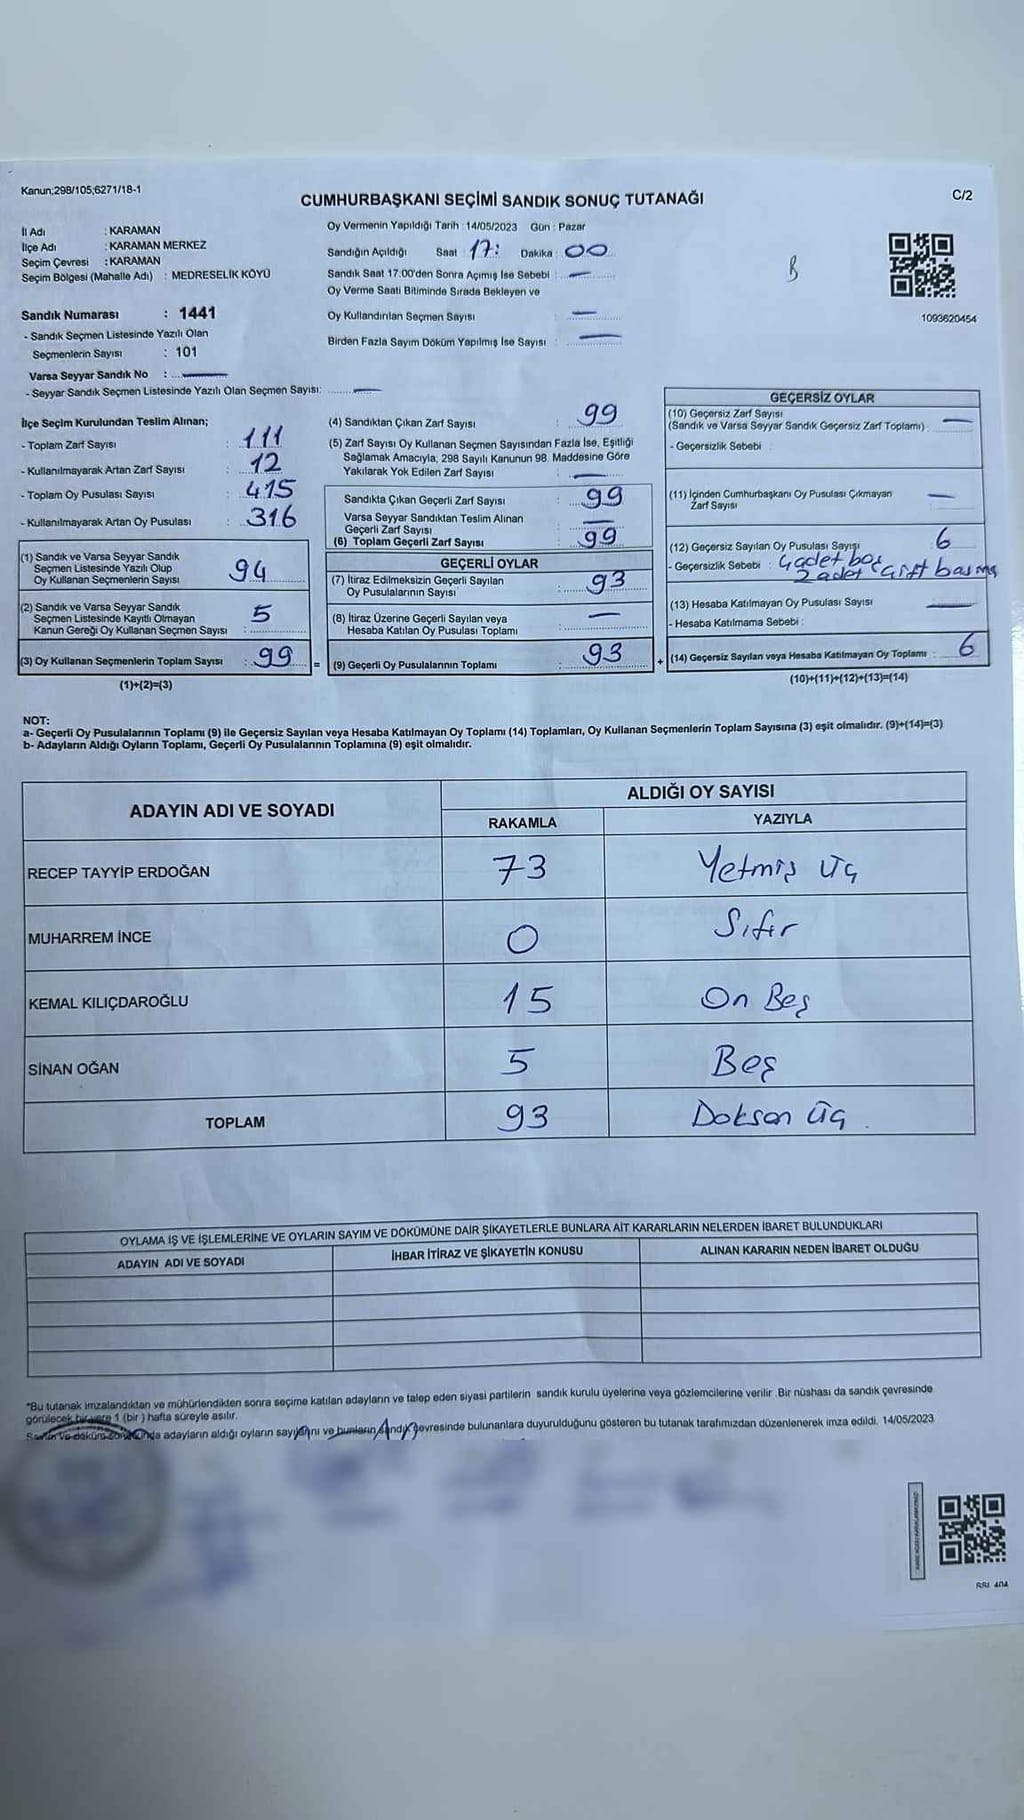 Kanun;298/105;6271/18-1
C/2
CUMHURBAŞKANI SEÇİMİ SANDIK SONUÇ TUTANAĞI
İl Adı : KARAMAN
İlçe Adı : KARAMAN MERKEZ
Seçim Çevresi : KARAMAN
Seçim Bölgesi (Mahalle Adı) : MEDRESELİK KÖYÜ
Oy Vermenin Yapıldığı Tarih : 14/05/2023 Gün : Pazar
Sandığın Açıldığı Saat 17: Dakika : 00
Sandık Saat 17:00'den Sonra Açımış İse Sebebi : —
Oy Verme Saati Bitiminde Sırada Bekleyen ve
Oy Kullandırılan Seçmen Sayısı : —
Birden Fazla Sayım Döküm Yapılmış İse Sayısı : —
1093620454
Sandık Numarası : 1441
- Sandık Seçmen Listesinde Yazılı Olan
Seçmenlerin Sayısı : 101
Varsa Seyyar Sandık No : —
- Seyyar Sandık Seçmen Listesinde Yazılı Olan Seçmen Sayısı: —
İlçe Seçim Kurulundan Teslim Alınan;
- Toplam Zarf Sayısı : 111
- Kullanılmayarak Artan Zarf Sayısı : 12
- Toplam Oy Pusulası Sayısı : 415
- Kullanılmayarak Artan Oy Pusulası : 316
(1) Sandık ve Varsa Seyyar Sandık
Seçmen Listesinde Yazılı Olup
Oy Kullanan Seçmenlerin Sayısı 94
(2) Sandık ve Varsa Seyyar Sandık
Seçmen Listesinde Kayıtlı Olmayan
Kanun Gereği Oy Kullanan Seçmen Sayısı : 5
(3) Oy Kullanan Seçmenlerin Toplam Sayısı : 99
(1)+(2)=(3)
(4) Sandıktan Çıkan Zarf Sayısı : 99
(5) Zarf Sayısı Oy Kullanan Seçmen Sayısından Fazla İse, Eşitliği
Sağlamak Amacıyla, 298 Sayılı Kanunun 98. Maddesine Göre
Yakılarak Yok Edilen Zarf Sayısı : —
Sandıkta Çıkan Geçerli Zarf Sayısı : 99
Varsa Seyyar Sandıktan Teslim Alınan
Geçerli Zarf Sayısı : —
(6) Toplam Geçerli Zarf Sayısı : 99
GEÇERLİ OYLAR
(7) İtiraz Edilmeksizin Geçerli Sayılan
Oy Pusulalarının Sayısı : 93
(8) İtiraz Üzerine Geçerli Sayılan veya
Hesaba Katılan Oy Pusulası Toplamı : —
= (9) Geçerli Oy Pusulalarının Toplamı : 93
GEÇERSİZ OYLAR
(10) Geçersiz Zarf Sayısı
(Sandık ve Varsa Seyyar Sandık Geçersiz Zarf Toplamı) : —
- Geçersizlik Sebebi :
(11) İçinden Cumhurbaşkanı Oy Pusulası Çıkmayan
Zarf Sayısı : —
(12) Geçersiz Sayılan Oy Pusulası Sayısı : 6
- Geçersizlik Sebebi : 4 adet boş
2 adet çift basma
(13) Hesaba Katılmayan Oy Pusulası Sayısı : —
- Hesaba Katılmama Sebebi :
+ (14) Geçersiz Sayılan veya Hesaba Katılmayan Oy Toplamı : 6
(10)+(11)+(12)+(13)=(14)
NOT:
a- Geçerli Oy Pusulalarının Toplamı (9) ile Geçersiz Sayılan veya Hesaba Katılmayan Oy Toplamı (14) Toplamları, Oy Kullanan Seçmenlerin Toplam Sayısına (3) eşit olmalıdır. (9)+(14)=(3)
b- Adayların Aldığı Oyların Toplamı, Geçerli Oy Pusulalarının Toplamına (9) eşit olmalıdır.
ADAYIN ADI VE SOYADI ALDIĞI OY SAYISI
RAKAMLA YAZIYLA
RECEP TAYYİP ERDOĞAN 73 Yetmiş üç
MUHARREM İNCE 0 Sıfır
KEMAL KILIÇDAROĞLU 15 On Beş
SİNAN OĞAN 5 Beş
TOPLAM 93 Doksan üç
OYLAMA İŞ VE İŞLEMLERİNE VE OYLARIN SAYIM VE DÖKÜMÜNE DAİR ŞİKAYETLERLE BUNLARA AİT KARARLARIN NELERDEN İBARET BULUNDUKLARI
ADAYIN ADI VE SOYADI İHBAR İTİRAZ VE ŞİKAYETİN KONUSU ALINAN KARARIN NEDEN İBARET OLDUĞU
*Bu tutanak imzalandıktan ve mühürlendikten sonra seçime katılan adayların ve talep eden siyasi partilerin sandık kurulu üyelerine veya gözlemcilerine verilir. Bir nüshası da sandık çevresinde
görülecek bir yere 1 (bir ) hafta süreyle asılır.
Sayım ve döküm sonucunda adayların aldığı oyların sayılarını ve bunların sandık çevresinde bulunanlara duyurulduğunu gösteren bu tutanak tarafımızdan düzenlenerek imza edildi. 14/05/2023